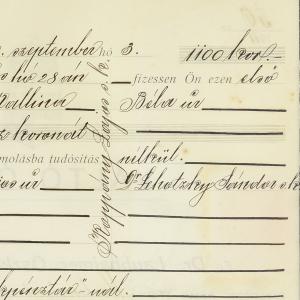 szeptember hó 3. 1100 kor f.-
hó 28 án fizessen Ön ezen első
Kallina Béla úr
koronát
molásba tudósítás nélkül.
úr Dr Lehotzky Sándor sk
Koppány Lajos s. k.
pénztár"-nál.